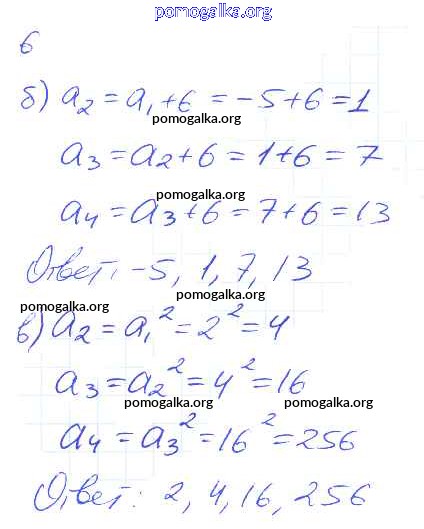 pomogalka.org
6
б) a₂ = a₁ + 6 = -5 + 6 = 1
pomogalka.org
a₃ = a₂ + 6 = 1 + 6 = 7
pomogalka.org
a₄ = a₃ + 6 = 7 + 6 = 13
Ответ: -5, 1, 7, 13
pomogalka.org
pomogalka.org
в) a₂ = a₁² = 2² = 4
a₃ = a₂² = 4² = 16
pomogalka.org pomogalka.org
a₄ = a₃² = 16² = 256
Ответ: 2, 4, 16, 256